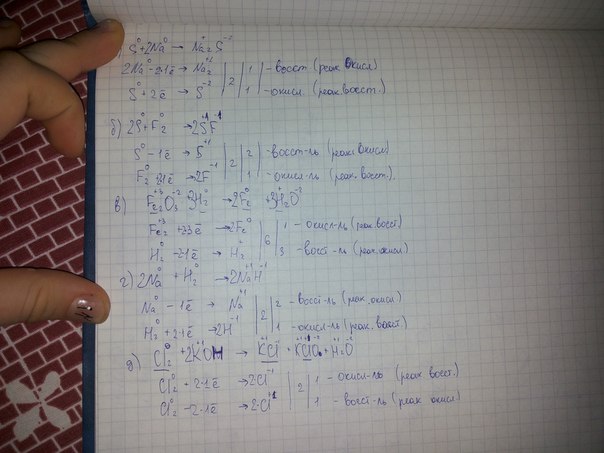 S⁰+2Na⁰ → Na₂⁺¹S⁻²
2Na⁰-2·1ē → Na₂⁺¹ | 2 | 1 | -восст (реак окисл)
S⁰+2ē → S⁻² | 1 -окисл. (реак.восст.)
б) 2S⁰+F₂⁰ →2S⁺¹F⁻¹
S⁰-1ē → S⁺¹ | 2 | 2 | -восст-ль (реак. окисл)
F₂⁰+2·1ē →2F⁻¹ | 1 -окисл-ль (реак. восст).
в) Fe₂⁺³O₃⁻²+3H₂⁰ →2Fe⁰ +3H₂⁺O⁻²
Fe₂⁺³ +2·3ē →2Fe⁰ | 6 | 1 - окисл-ль (реак.восст)
H₂⁰ -2·1ē → H₂⁺ | 3 -восст-ль (реак.окисл)
г) 2Na⁰ + H₂⁰ →2Na⁺¹H⁻¹
Na⁰ - 1ē → Na⁺¹ | 2 | 2 - восст-ль (реак. окисл)
H₂⁰+2·1ē →2H⁻¹ | 1 -окисл-ль (реак. восст).
д) Cl₂⁰ +2K⁺¹OH → K⁺¹Cl⁻¹+K⁺¹Cl⁺¹O⁻²+H₂⁺¹O⁻²
Cl₂⁰ + 2·1ē →2Cl⁻¹ | 2 | 1 - окисл-ль (реак восст.)
Cl₂⁰ -2·1ē →2·Cl⁺¹ | 1 - восст-ль (реак окисл)